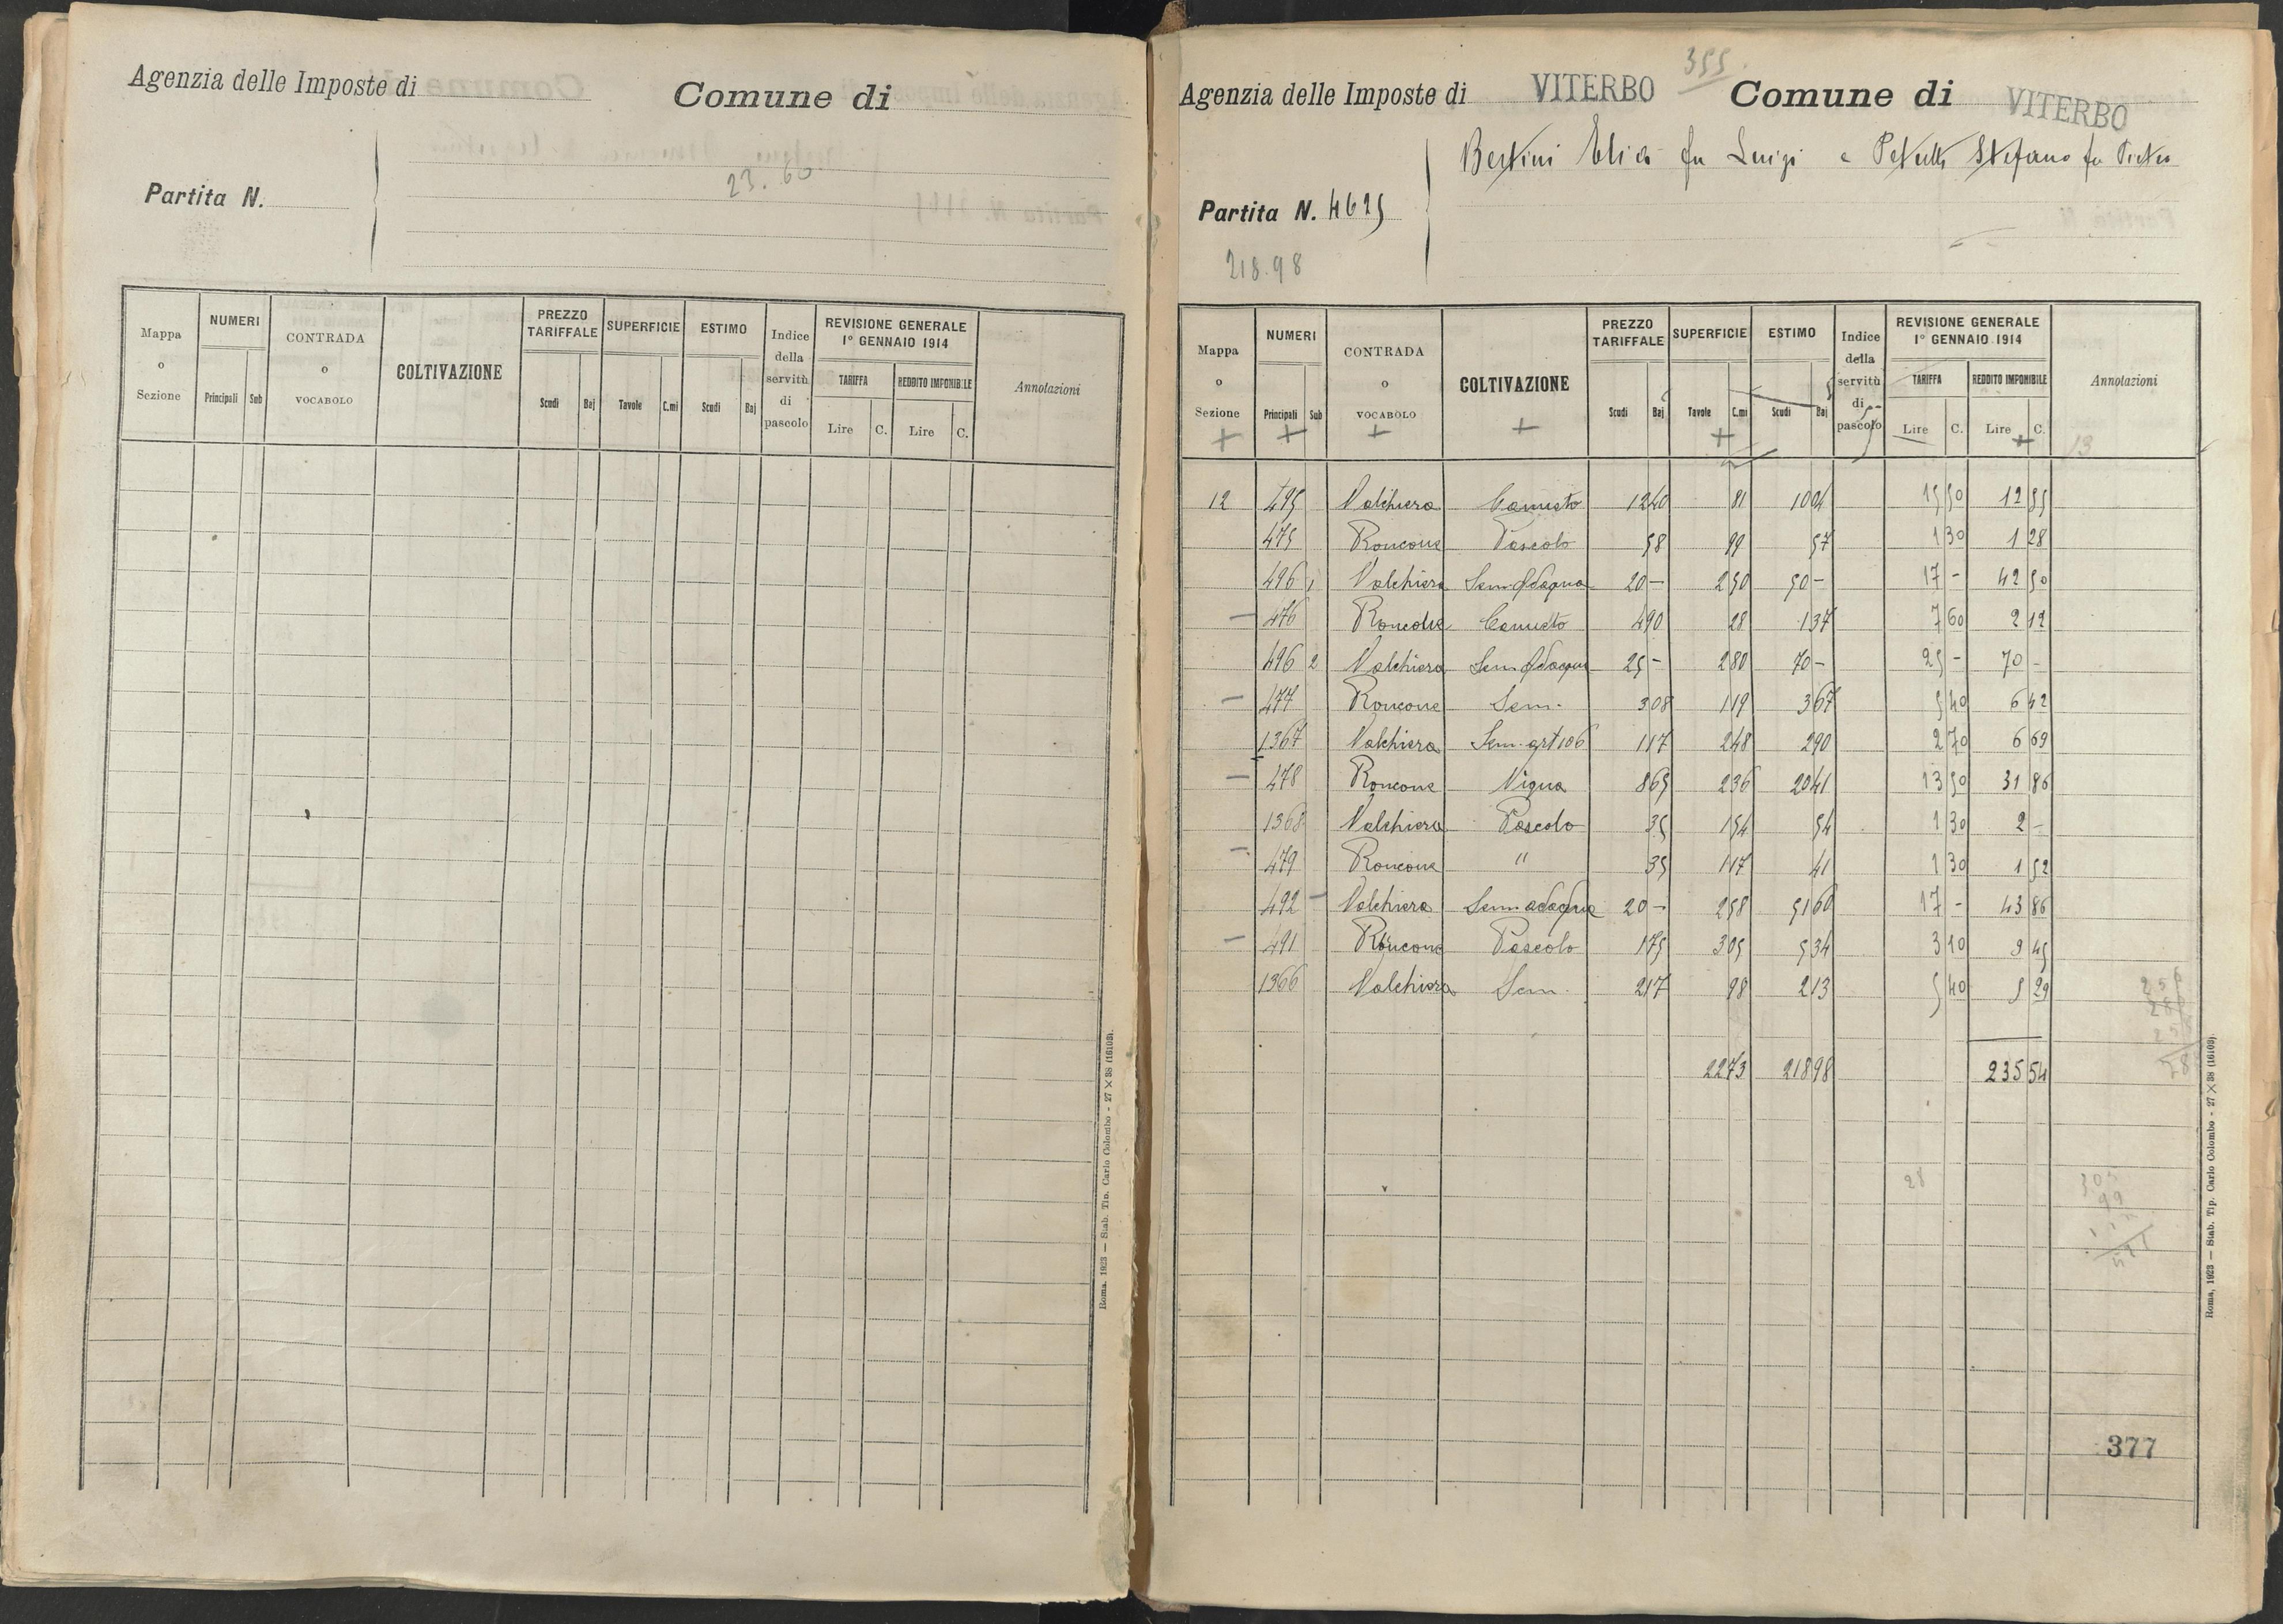 Agenzia delle Imposte di
Comune di
Partita N.
23.60
Mappa o Sezione
NUMERI
Principali Sub
CONTRADA o VOCABOLO
COLTIVAZIONE
PREZZO TARIFFALE
Scudi Baj
SUPERFICIE
Tavole C.mi
ESTIMO
Scudi Baj
Indice della servitù di pascolo
REVISIONE GENERALE 1° GENNAIO 1914
TARIFFA
Lire C.
REDDITO IMPONIBILE
Lire C.
Annotazioni
Roma, 1923 — Stab. Tip. Carlo Colombo - 27 X 38 (16103).
355
Agenzia delle Imposte di VITERBO Comune di VITERBO
Bertini Elia fu Luigi e Petulli Stefano fu Pietro
Partita N. 4625
218.98
Mappa o Sezione
NUMERI
Principali Sub
CONTRADA o VOCABOLO
COLTIVAZIONE
PREZZO TARIFFALE
Scudi Baj
SUPERFICIE
Tavole C.mi
ESTIMO
Scudi Baj
Indice della servitù di pascolo
REVISIONE GENERALE 1° GENNAIO 1914
TARIFFA
Lire C.
REDDITO IMPONIBILE
Lire C.
Annotazioni
13
12 495 Valchiera Canneto 12 40 81 10 04 15 50 12 55
475 Roncone Pascolo 58 99 57 1 30 1 28
496 1 Valchiera Sem. Adacqua 20 - 2 50 50 - 17 - 42 50
476 Roncone Canneto 4 90 28 1 37 7 60 2 12
496 2 Valchiera Sem Adacqua 25 - 2 80 70 - 25 - 70 -
477 Roncone Sem. 3 08 1 19 3 67 5 40 6 42
1367 Valchiera Sem. art 106 1 17 2 48 2 90 2 70 6 69
478 Roncone Vigna 8 65 2 36 20 41 13 50 31 86
1368 Valchiera Pascolo 35 1 54 54 1 30 2 -
479 Roncone " 35 1 17 41 1 30 1 52
492 Valchiera Sem adacqua 20 - 2 58 51 60 17 - 43 86
491 Roncone Pascolo 1 75 3 05 5 34 3 10 9 45
1366 Valchiera Sem. 2 17 98 2 13 5 40 5 29
22 73 218 98 235 54
28
305
99
377
Roma, 1923 — Stab. Tip. Carlo Colombo - 27 X 38 (16103).